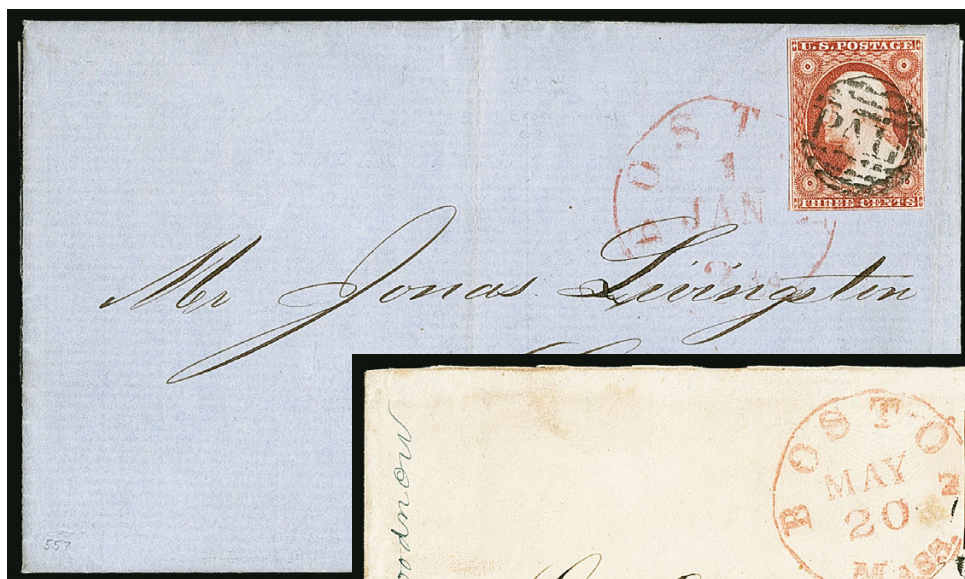 U.S. POSTAGE
PAID
THREE CENTS
BOSTON
1
JAN
Mr Jonas Livingston
557
BOSTON
MAY
20
Mass.
oodnow